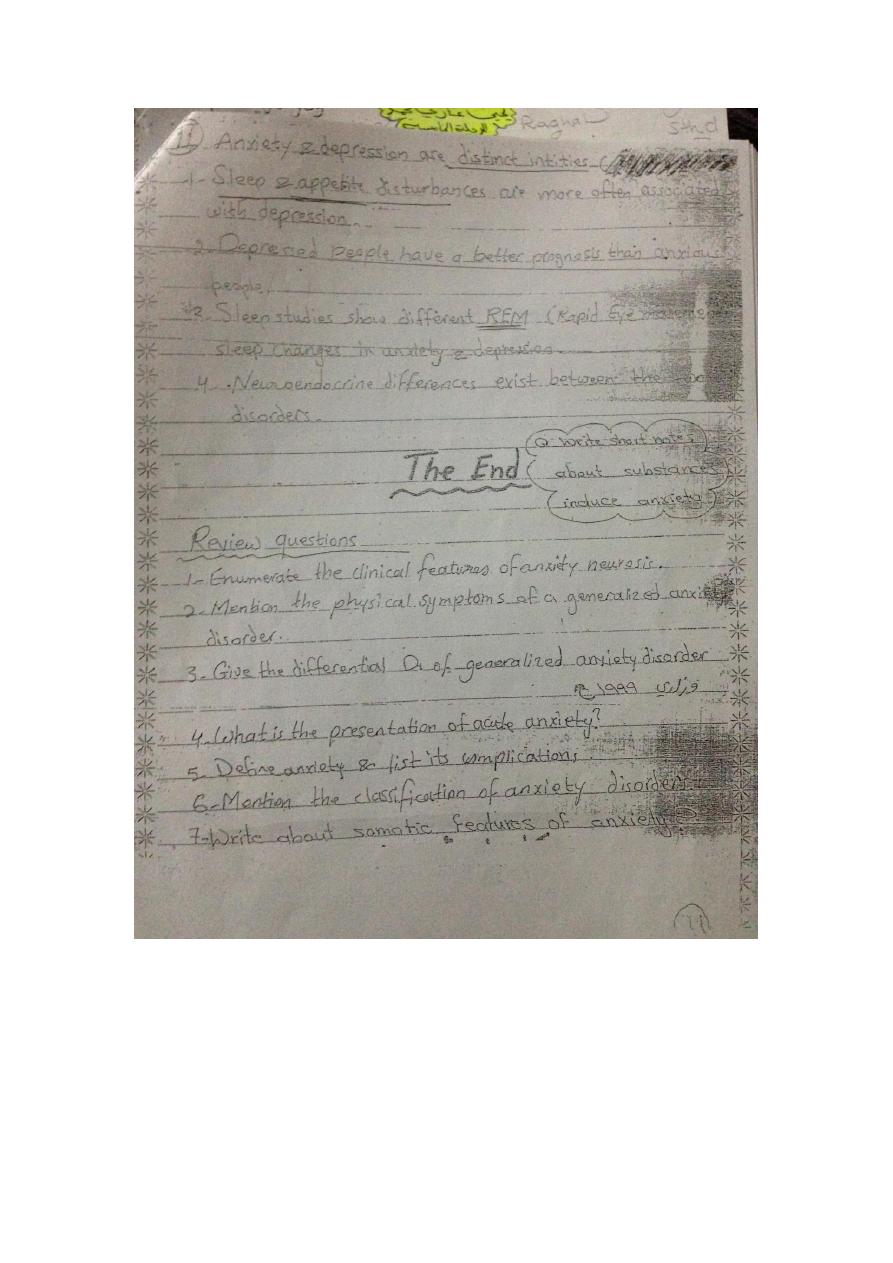 Raghad
5thd
11 Anxiety & depression are distinct intities (
1- Sleep & appetite disturbances are more often associated
with depression.
2- Depressed people have a better prognosis than anxious
people.
*3. Sleep studies show different REM (Rapid Eye
sleep changes in anxiety & depression.
4. Neuroendocrine differences exist between the two
disorders.
The End
Q. Write short notes
about substances
induce anxiety
Review questions
1- Enumerate the clinical features of anxity neurosis.
2- Mention the physical symptoms of a generalized anxiety
disorder.
3- Give the differential Dx of generalized anxiety disorder
وزاري 1999
4- What is the presentation of acute anxiety?
5- Define anxiety & list its complications
6- Mention the classification of anxiety disorders.
7- Write about somatic features of anxiety.